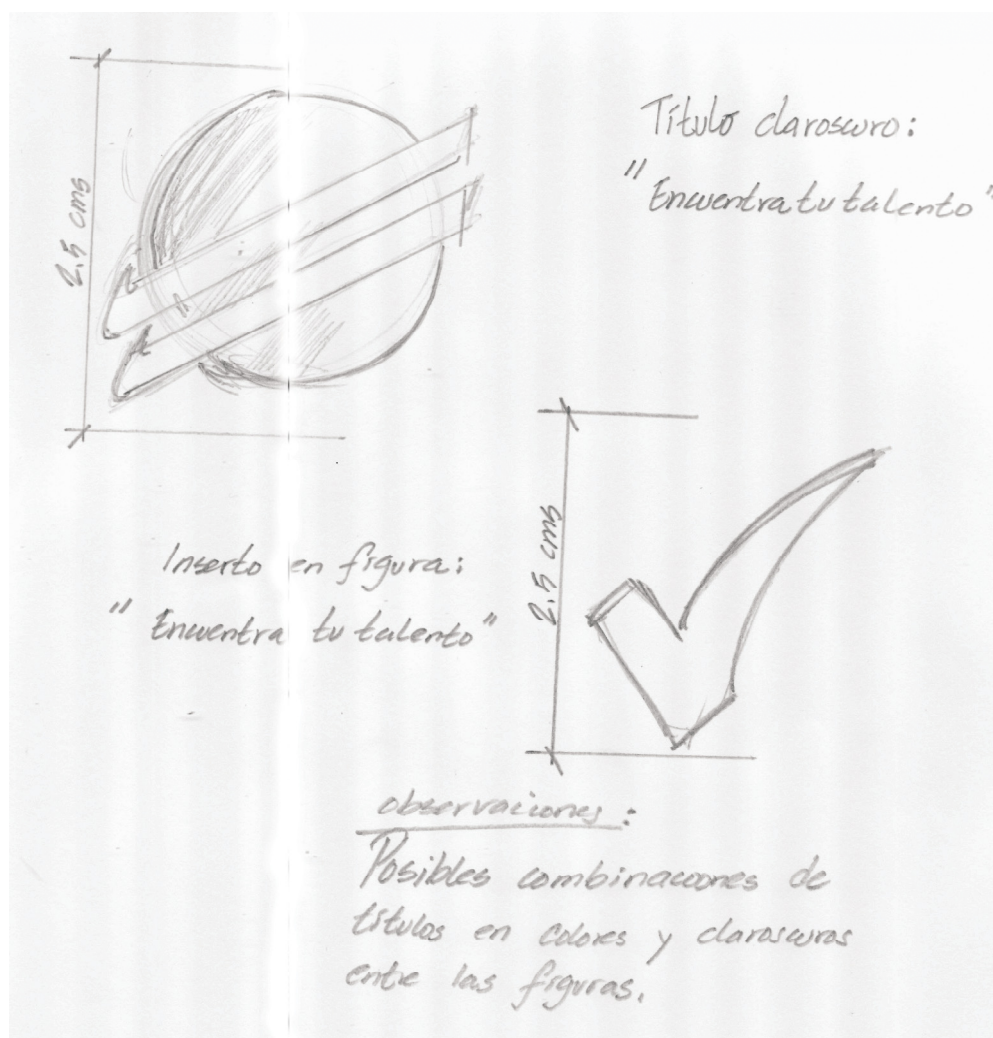 2.5 cms
Título claroscuro:
"Encuentra tu talento"
Inserto en figura:
"Encuentra tu talento"
2.5 cms
observaciones:
Posibles combinaciones de
títulos en colores y claroscuros
entre las figuras.